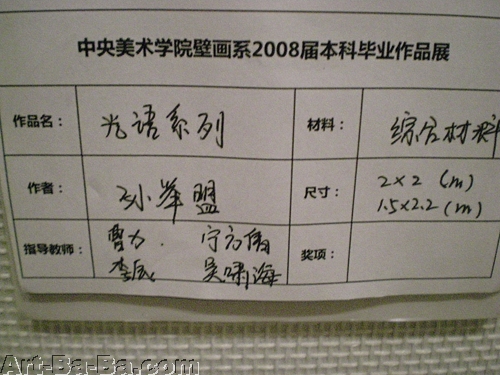 中央美术学院壁画系2008届本科毕业作品展
作品名： 光语系列 材料： 综合材料
作者： 孙举盟 尺寸： 2×2 (m)
1.5×2.2 (m)
指导教师： 曹力． 宁方倩 奖项：
李辰 吴啸海
Art-Ba-Ba.com